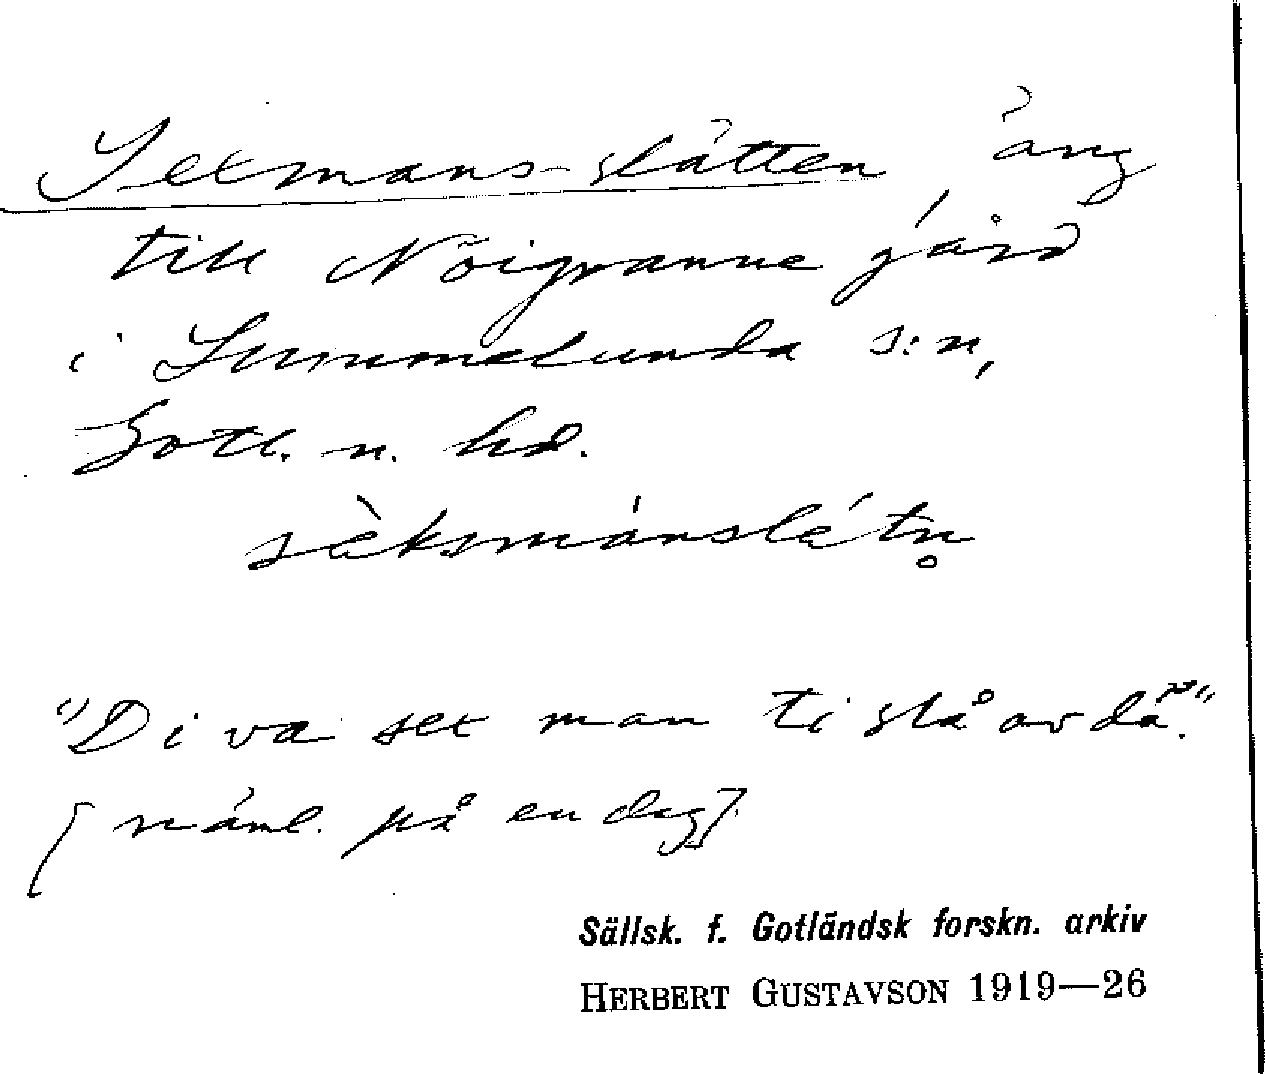 Sexmans-slätten äng
till Nöigranne gård
i Lummelunda s:n,
Gotl. n. hd.
sèksmánslátn̥
"Di va sex man ti slå av dä."
[näml. på en dag].
Sällsk. f. Gotländsk forskn. arkiv
HERBERT GUSTAVSON 1919—26